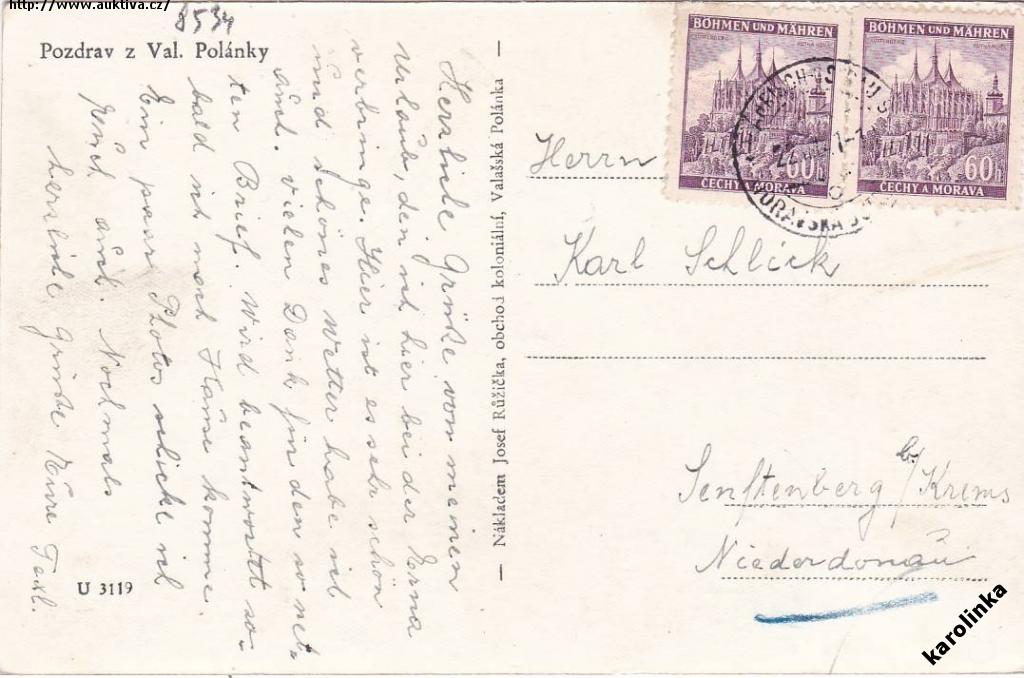 http://www.auktiva.cz/
8534
Pozdrav z Val. Polánky
BÖHMEN UND MÄHREN
60h
ČECHY A MORAVA
BÖHMEN UND MÄHREN
60h
ČECHY A MORAVA
Herzliche Grüße vom meinen
Urlaub, den ich hier bei der Erna
verbringe. Hier ist es sehr schön
und schönes Wetter habe ich
auch. vielen Dank für den so net-
ten Brief. Wird beantwortet so-
bald ich nach Hause komme.
Ein paar Photos schicke ich
Euch auch. Nochmals
herzliche Grüße Eure
Nákladem Josef Růžička, obchod koloniální, Valašská Polánka
Herrn
Karl Schlick
Senftenberg b/Krems
Niederdonau
U 3119
karolinka